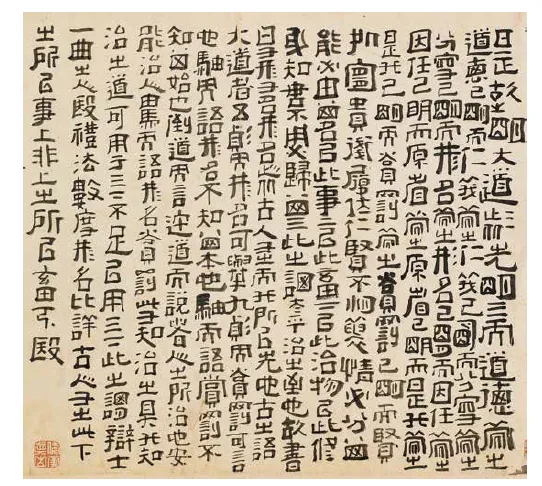 是故古之明大道者先明天而道德次之
道德已明而仁義次之仁義已明而分守次之
分守已明而形名次之形名已明而因任次之
因任已明而原省次之原省已明而是非次之
是非已明而賞罰次之賞罰已明而愚
知處宜貴賤履位仁賢不肖襲情必分其
能必由其名以此事上以此畜下以此治物以此修
身知謀不用必歸其天此之謂大平治之至也故書
曰有形有名形名者古人有之而非所以先也古之語
大道者五變而形名可舉九變而賞罰可言
也驟而語形名不知其本也驟而語賞罰不
知其始也倒道而言迕道而說者人之所治也安
能治人驟而語形名賞罰此有知治之具非知
治之道可用于天下不足以用天下此之謂辯士
一曲之人也禮法數度形名比詳古人有之此下
之所以事上非上之所以畜下也